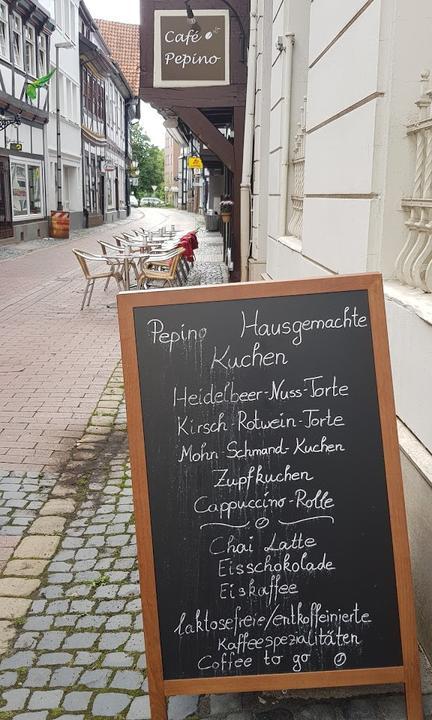 Café
Pepino
Pepino Hausgemachte
Kuchen
Heidelbeer-Nuss-Torte
Kirsch-Rotwein-Torte
Mohn-Schmand-Kuchen
Zupfkuchen
Cappuccino-Rolle
Chai Latte
Eisschokolade
Eiskaffee
laktosefreie/entkoffeinierte
Kaffeespezialitäten
Coffee to go